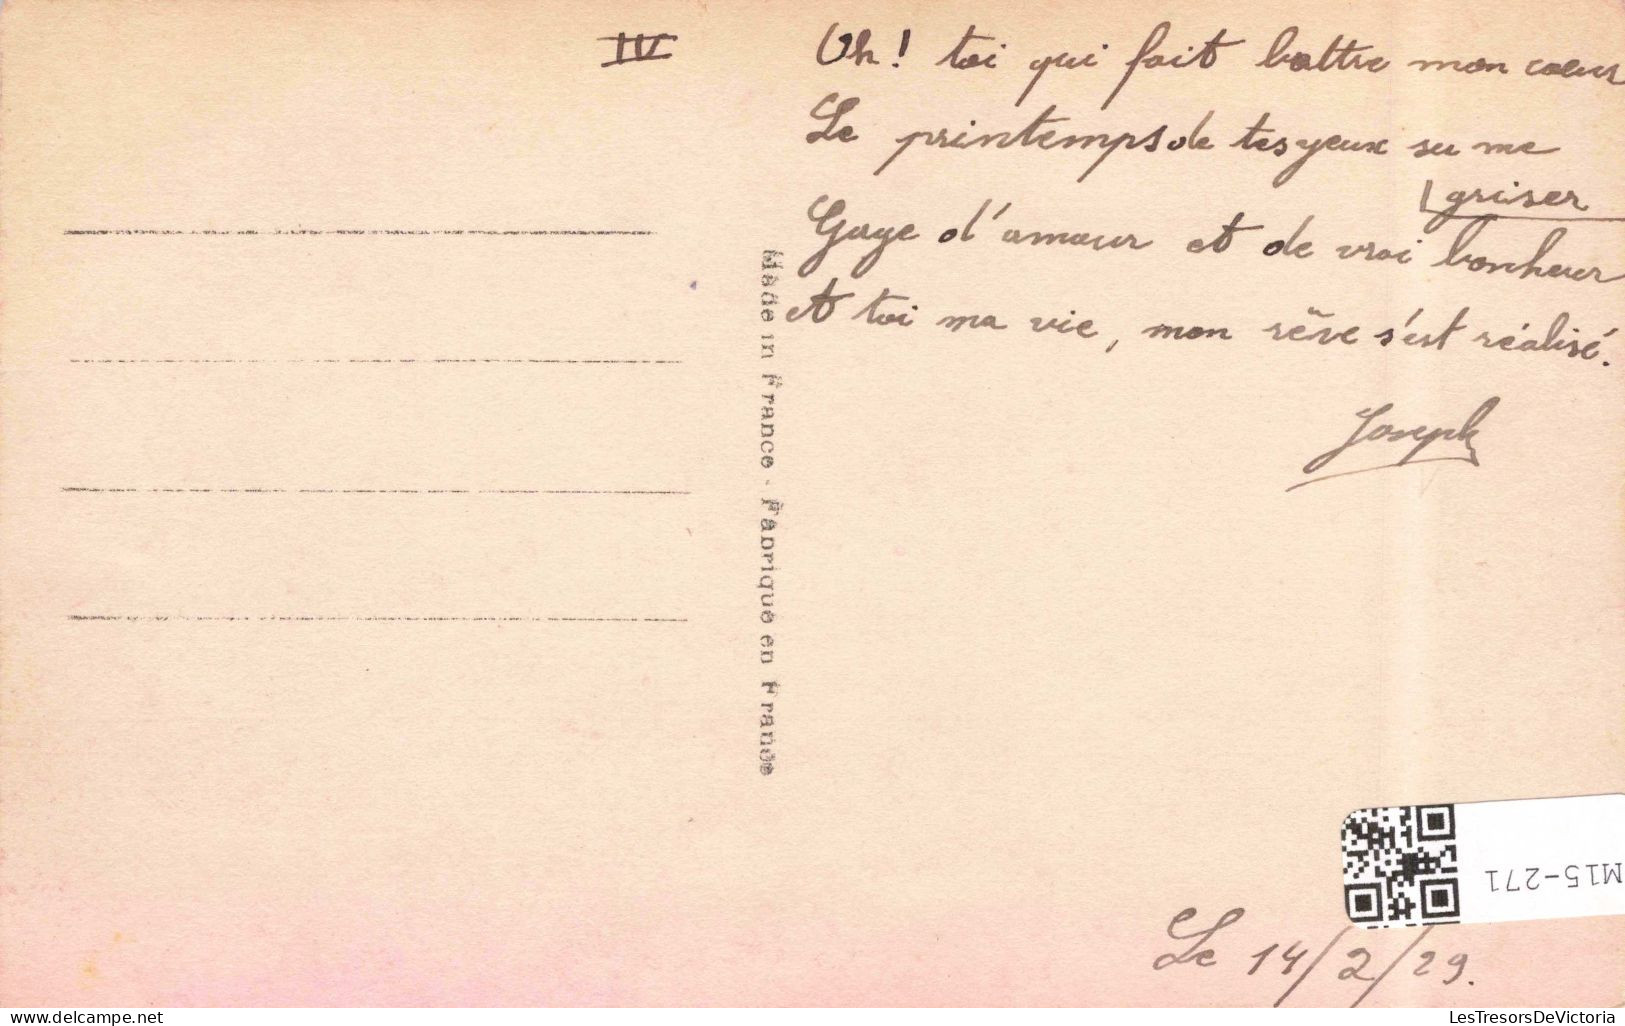 IV
Oh! toi qui fait battre mon coeur
Le printemps de tes yeux su me
griser
Gage d'amour et de vrai bonheur
et toi ma vie, mon rêve s'est réalisé.
Joseph
Made in France - Fabriqué en France
M15-271
Le 14/2/29.
LesTresorsDeVictoria
delcampe.net